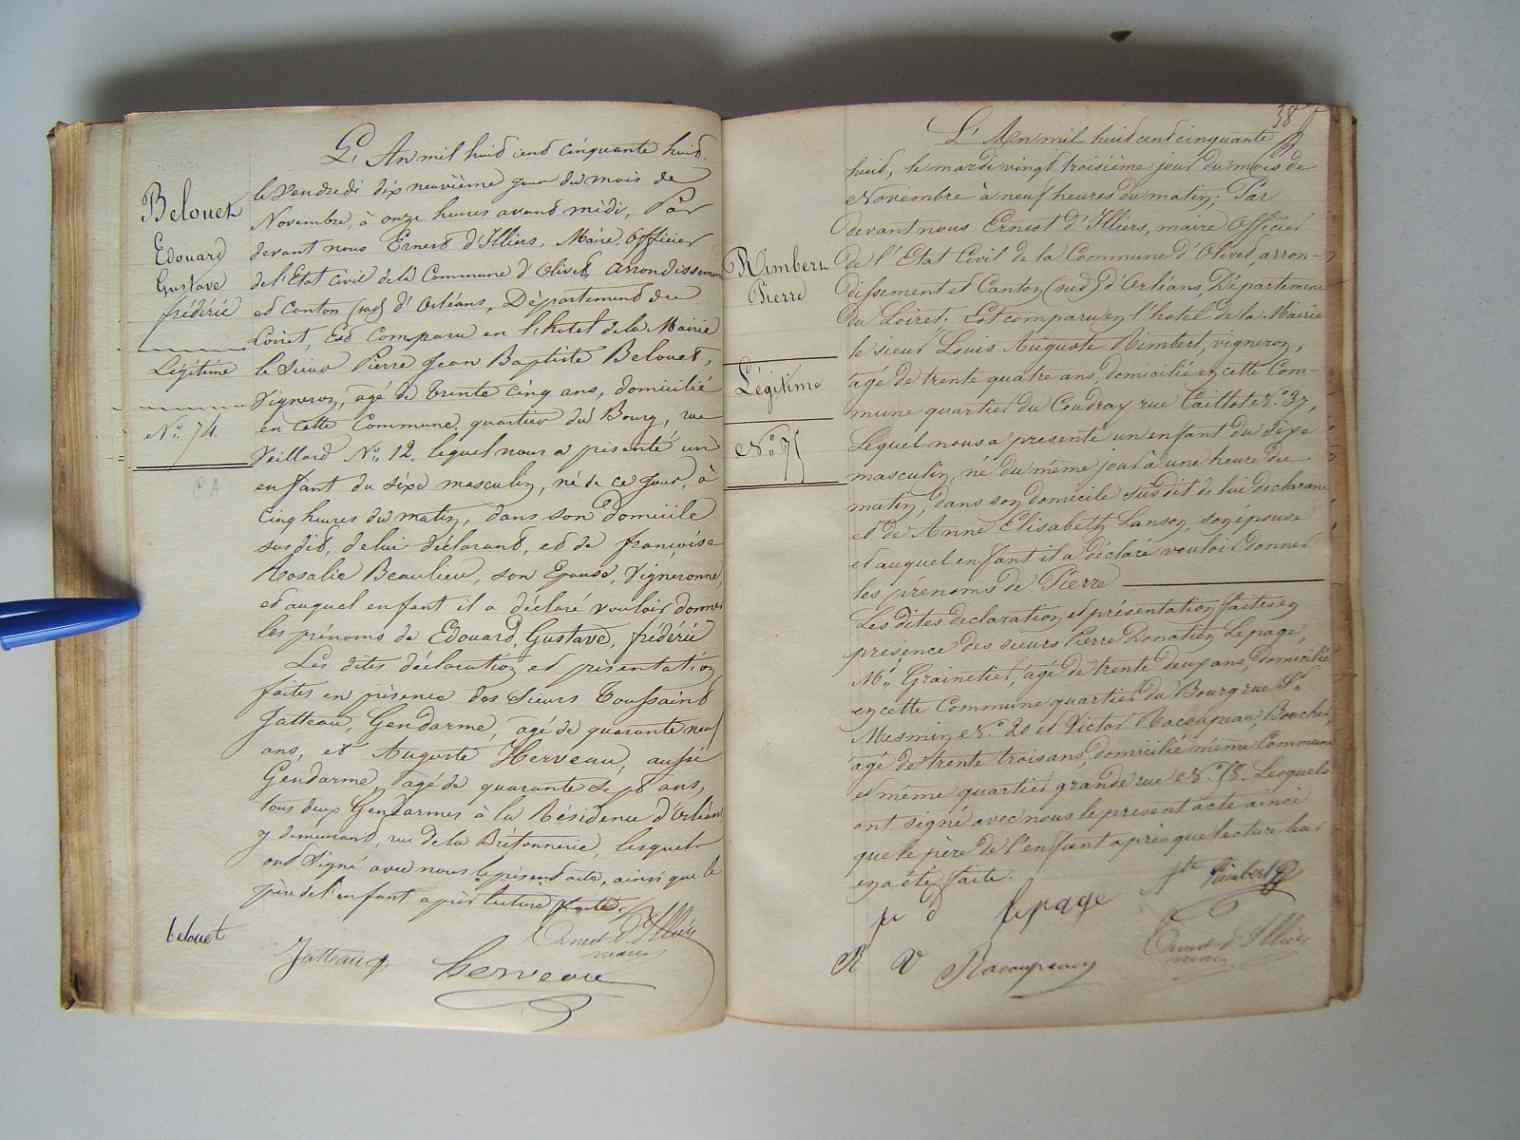 Belouet
Edouard
Gustave
frédéric
Légitime
N° 74.
L'An mil huit cent cinquante huit,
le Vendredi dix neuvième jour du mois de
Novembre, à onze heures avant midi, Par
devant nous Ernest d'Illiers, Maire, officier
de l'Etat Civil de la Commune d'Olivet, arrondissement
et Canton (sud) d'Orléans, Département du
Loiret, Est Comparu en l'hôtel de la Mairie
le Sieur Pierre Jean Baptiste Belouet,
Vigneron, agé de trente cinq ans, domicilié
en cette Commune, quartier du Bourg, rue
Veillard N° 12. lequel nous a présenté un
enfant du sèxe masculin, né de ce jour, à
cinq heures du matin, dans son domicile
susdit, de lui déclarant, et de françoise
Rosalie Beaulieu, son Epouse, Vigneronne,
et auquel enfant il a déclaré vouloir donner
les prénoms de Edouard, Gustave, frédéric
Les dites déclaration et présentation
faites en présence des Sieurs Toussaint
Jatteau, Gendarme, agé de quarante neuf
ans, et Auguste Herveau, aussi
Gendarme, agé de quarante sept ans,
tous deux Gendarmes à la Résidence d'Orléans
y demeurant, rue de la Bretonnerie, lesquels
ont signé avec nous le présent acte, ainsi que le
père de l'enfant après lecture faite.
belouet
Jatteau
herveau
Ernest d'Illiers
maire
38
Rimbert
Pierre
Légitime
N° 75
L'An mil huit cent cinquante
huit, le mardi vingt troisième jour du mois de
Novembre à neuf heures du matin; Par
devant nous Ernest d'Illiers, maire Officier
de l'Etat Civil de la Commune d'Olivet, arron-
dissement et Canton (sud) d'Orléans, Département
du Loiret. Est comparu en l'hôtel de la Mairie
le sieur Louis Auguste Rimbert, vigneron,
agé de trente quatre ans, domicilié en cette Com-
mune quartier du Coudray rue Taillote N° 37,
Lequel nous a présenté un enfant du sèxe
masculin, né du même jour à une heure du
matin, dans son domicile susdit de lui déclarant
et de Anne Elisabeth Lanson, son épouse
et auquel enfant il a déclaré vouloir donner
les prénoms de Pierre
Les dites déclaration et présentation faites en
présence des sieurs Pierre Donatien Lepage,
Md Grainetier, agé de trente deux ans, domicilié
en cette Commune quartier du Bourg rue St
Mesmin N° 20 et Victor Racoupeau, Boucher,
agé de trente trois ans, domicilié même Commune
et même quartier grande rue N° 78. Lesquels
ont signé avec nous le présent acte ainsi
que le père de l'enfant après que lecture leur
en a été faite.
p d lepage
Rimbert
R V Racoupeau
Ernest d'Illiers
maire